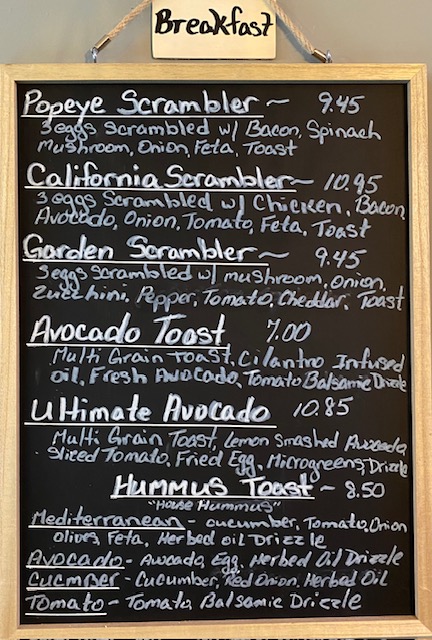 Breakfast
Popeye Scrambler ~ 9.45
3 eggs Scrambled w/ Bacon, Spinach
Mushroom, Onion, Feta, Toast
California Scrambler ~ 10.95
3 eggs Scrambled w/ Chicken, Bacon
Avocado, Onion, Tomato, Feta, Toast
Garden Scrambler ~ 9.45
3 eggs Scrambled w/ mushroom, Onion,
Zucchini, Pepper, Tomato, Cheddar, Toast
Avocado Toast 7.00
Multi Grain Toast, Cilantro Infused
oil, Fresh Avocado, Tomato Balsamic Drizzle
Ultimate Avocado 10.85
Multi Grain Toast, Lemon Smashed Avocado
Sliced Tomato, Fried Egg, Microgreens, Drizzle
Hummus Toast ~ 8.50
"House Hummus"
Mediterranean - cucumber, Tomato, Onion
olives, Feta, Herbed oil Drizzle
Avocado - Avocado, Egg, Herbed Oil Drizzle
Cucmber - Cucumber, Red Onion, Herbed Oil
Tomato - Tomato, Balsamic Drizzle